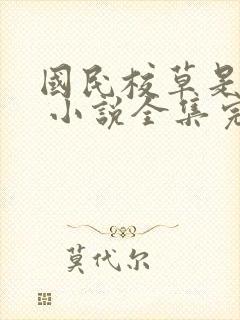 國民校草是
小說全集完
莫代尔